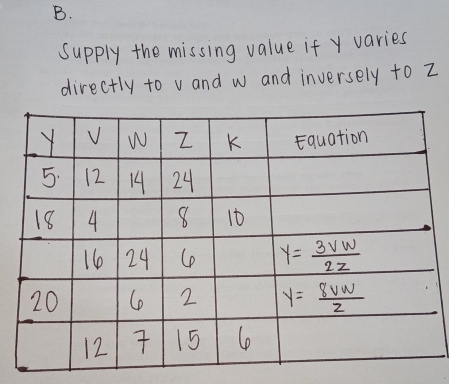 B.
Supply the missing value if y varies
directly to v and w and inversely to z
Y V W Z K Equation
5. 12 14 24
18 4 8 10
16 24 6 Y= 3vw/2z
20 6 2 Y= 8vw/z
12 7 15 6